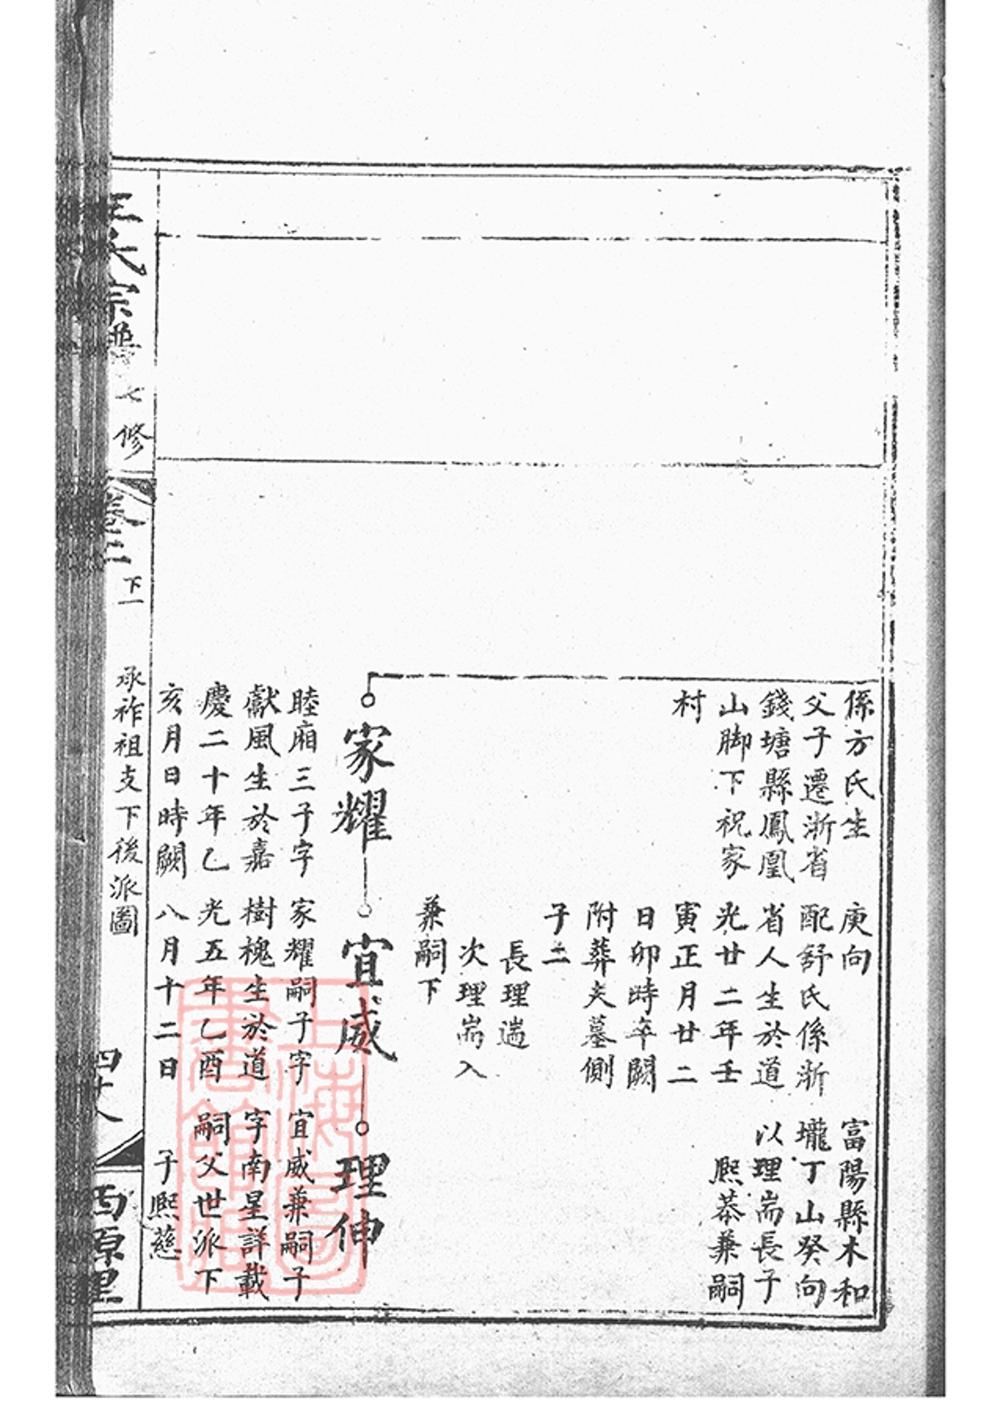 係方氏生
父子遷浙省
錢塘縣鳳凰
山脚下祝家
村
庚向
配舒氏係浙
省人生於道
光廿二年壬
寅正月廿二
日卯時卒闕
附葬夫墓側
子二
長理遄
次理耑入
兼嗣下
富陽縣木和
壠丁山癸向
以理耑長子
熙菾兼嗣
家耀
睦廂三子字
獻風生於嘉
慶二十年乙
亥月日時闕
宜威
家耀嗣子字
樹槐生於道
光五年乙酉
八月十二日
理伸
宜威兼嗣子
字南星詳載
嗣父世派下
子熙慈
王氏宗譜
七修
卷二
下一
承祚祖支下後派圖
四十八
西原里
上海圖書館藏